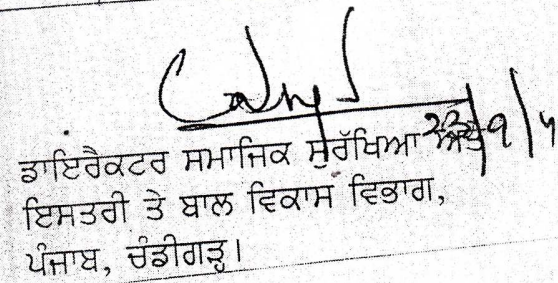 ਡਾਇਰੈਕਟਰ ਸਮਾਜਿਕ ਸੁਰੱਖਿਆ ਅਤੇ
ਇਸਤਰੀ ਤੇ ਬਾਲ ਵਿਕਾਸ ਵਿਭਾਗ,
ਪੰਜਾਬ, ਚੰਡੀਗੜ੍ਹ।